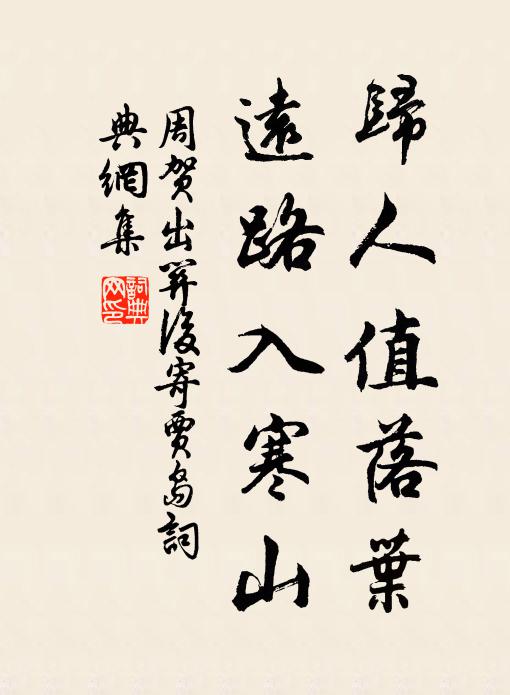 歸人值落葉
遠路入寒山
周贺出關後寄賈島詞
典網集
詞典
网印